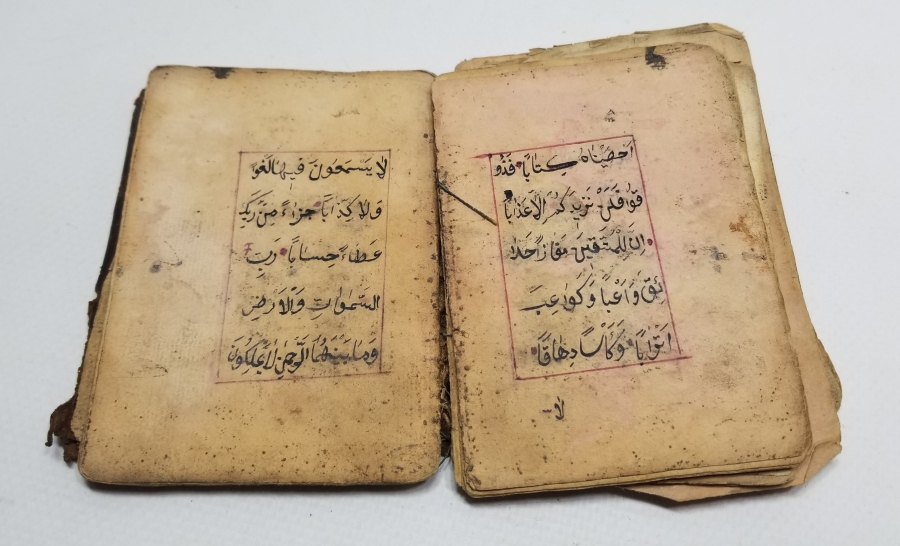 اَحْصَيْنَاهُ كِتَابًا فَذُو
قُوا فَلَنْ نَزِيدَكُمْ اِلَّا عَذَابًا
اِنَّ لِلْمُتَّقِينَ مَفَازًا حَدَا
ئِقَ وَاَعْنَابًا وَكَوَاعِبَ
اَتْرَابًا وَكَأْسًا دِهَاقًا
لا
لَا يَسْمَعُونَ فِيهَا لَغْوًا
وَلَا كِذَّابًا جَزَاءً مِنْ رَبِّكَ
عَطَاءً حِسَابًا رَبِّ
السَّمٰوَاتِ وَالْاَرْضِ
وَمَا بَيْنَهُمَا الرَّحْمٰنِ لَا يَمْلِكُونَ